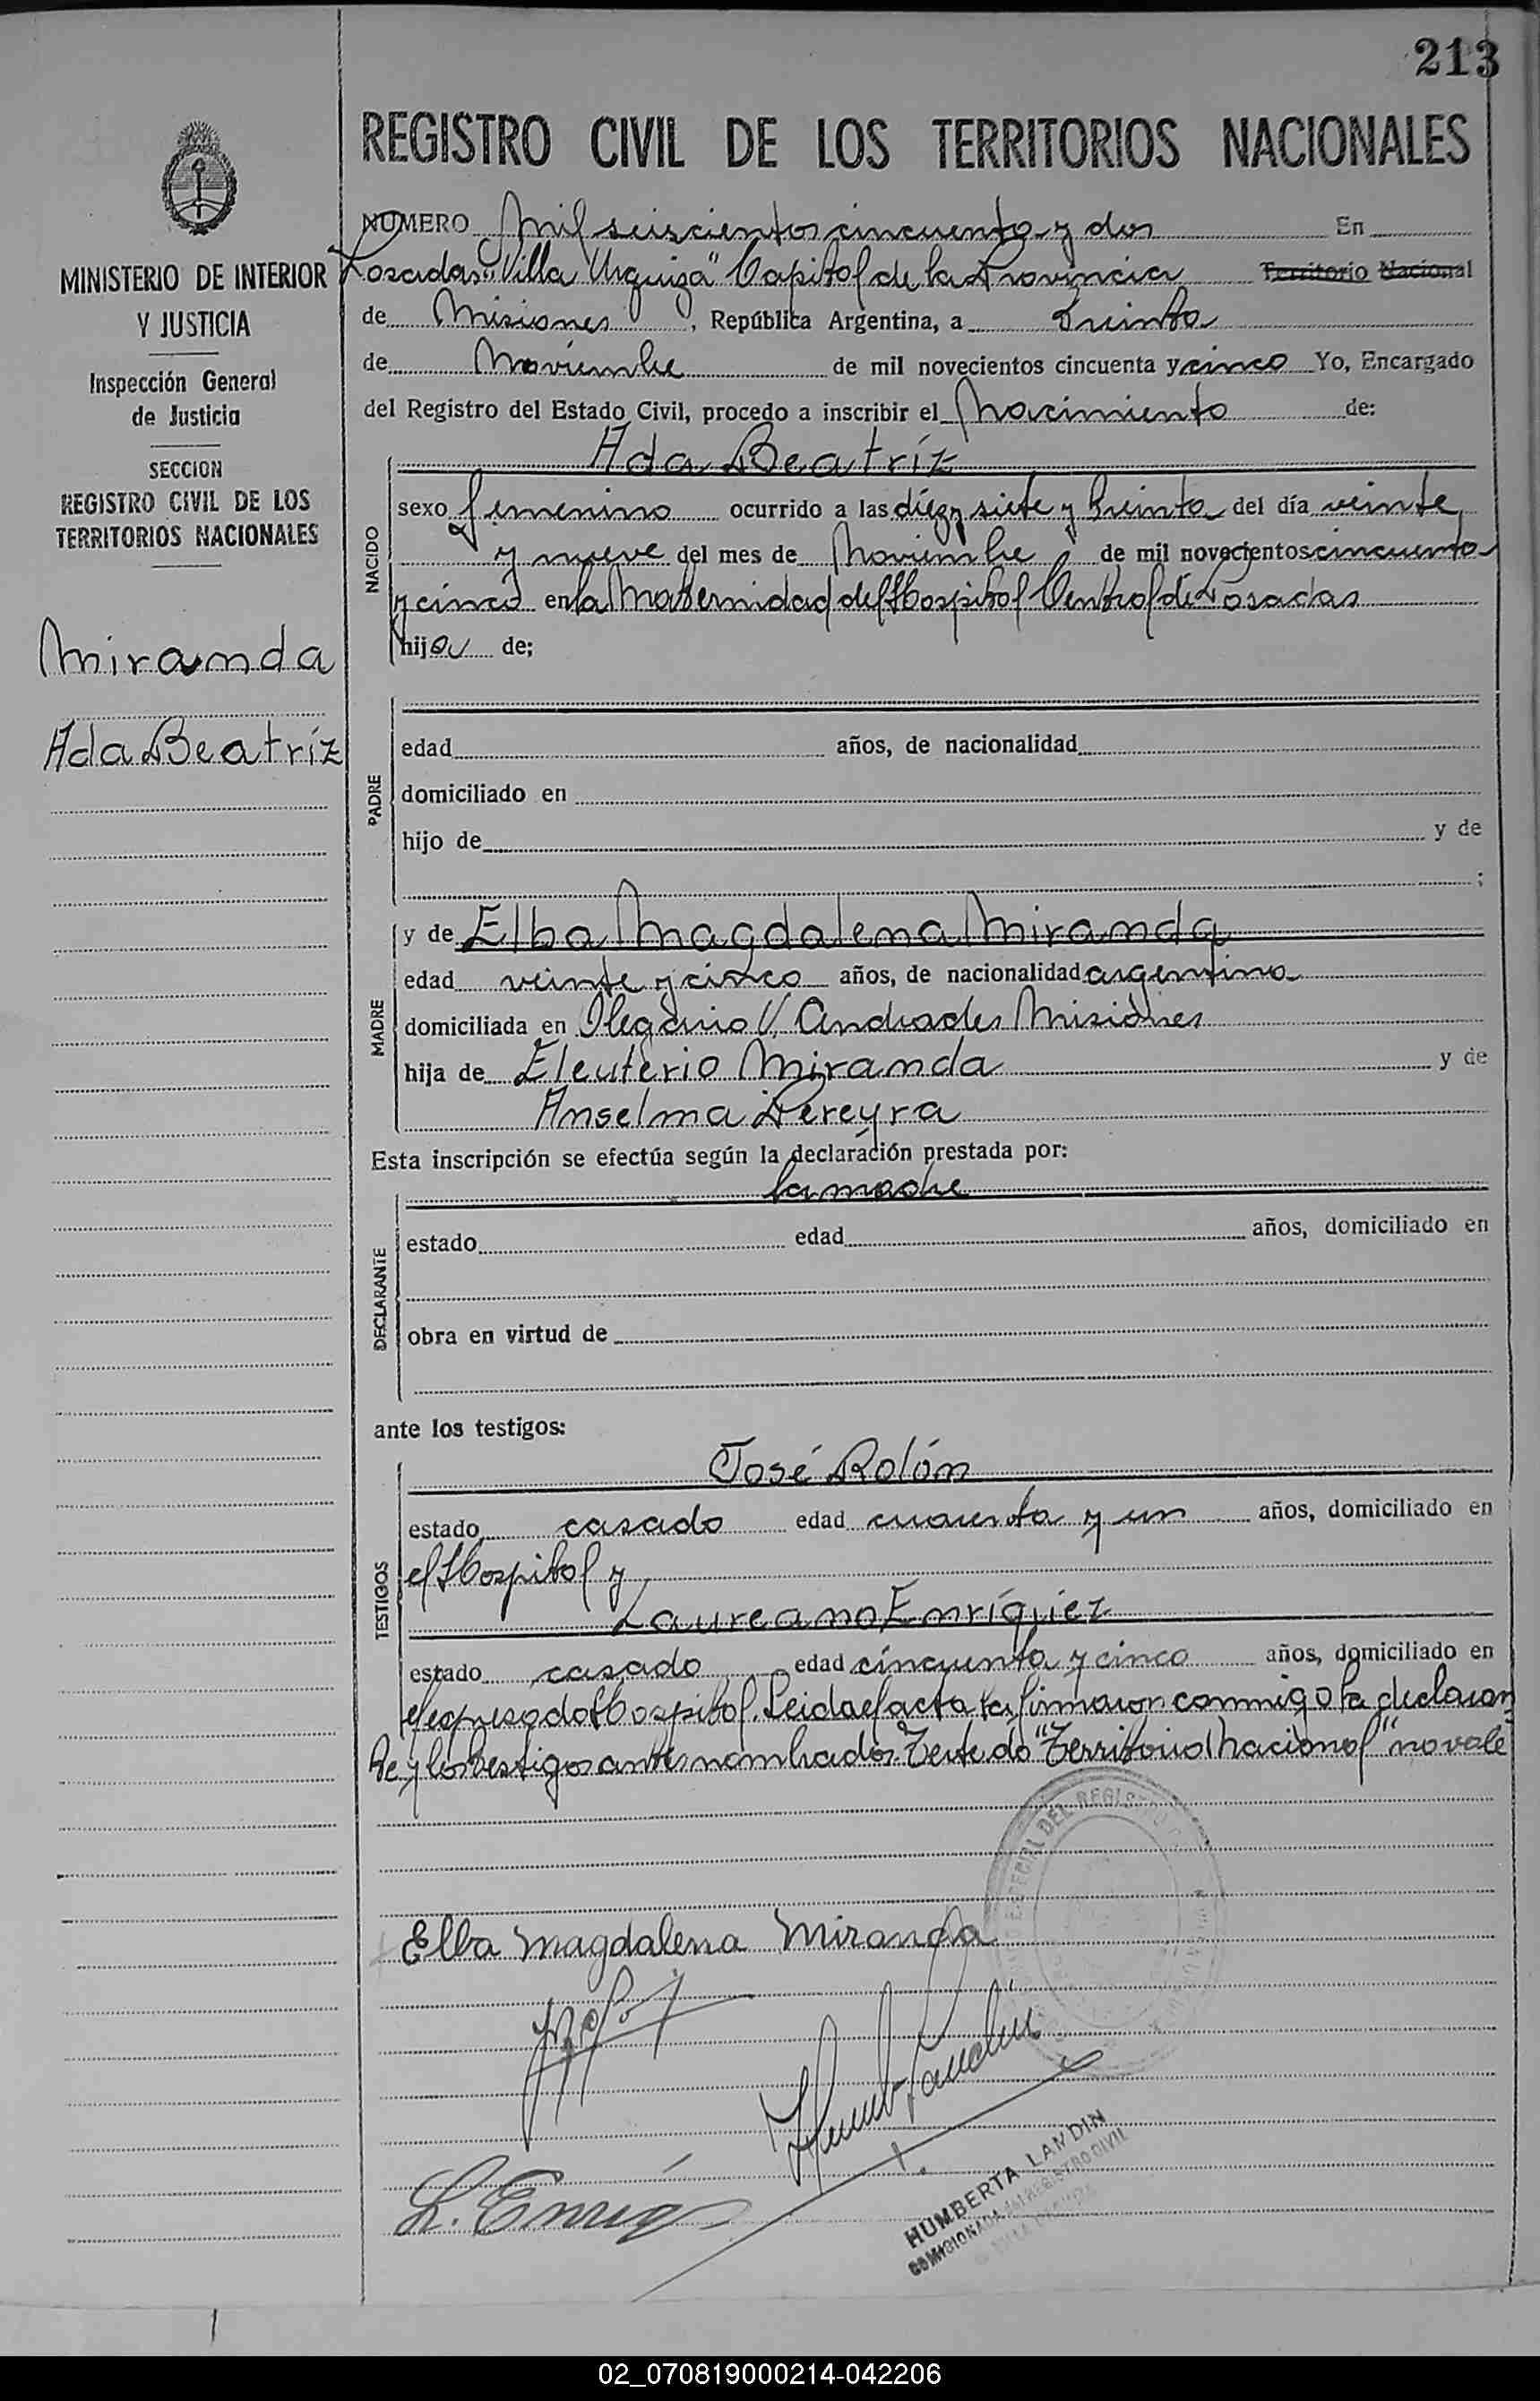 213
REGISTRO CIVIL DE LOS TERRITORIOS NACIONALES
MINISTERIO DE INTERIOR
Y JUSTICIA
Inspección General
de Justicia
SECCION
REGISTRO CIVIL DE LOS
TERRITORIOS NACIONALES
Miranda
Ada Beatríz
NUMERO Mil seiscientos cincuenta y dos En
Posadas "Villa Urquiza" Capital de la Provincia Territorio Nacional
de Misiones, República Argentina, a Treinta
de Noviembre de mil novecientos cincuenta y cinco Yo, Encargado
del Registro del Estado Civil, procedo a inscribir el Nacimiento de:
Ada Beatríz
NACIDO
sexo femenino ocurrido a las diez y siete y treinta del día veinte
y nueve del mes de Noviembre de mil novecientos cincuenta
y cinco en la Maternidad del Hospital Central de Posadas
hija de;
PADRE
edad años, de nacionalidad
domiciliado en
hijo de y de
;
MADRE
y de Elba Magdalena Miranda
edad veinte y cinco años, de nacionalidad argentina
domiciliada en Olegario V. Andrades Misiones
hija de Eleuterio Miranda y de
Anselma Pereyra
Esta inscripción se efectúa según la declaración prestada por:
la madre
DECLARANTE
estado edad años, domiciliado en
obra en virtud de
ante los testigos:
José Rolón
TESTIGOS
estado casado edad cuarenta y un años, domiciliado en
el Hospital y
Laureano Enríquez
estado casado edad cincuenta y cinco años, domiciliado en
el expresado Hospital. Leida el acta la firmaron conmigo la declaran
te y los testigos antes nombrados. Testado "Territorio Nacional" no vale
DEL REGISTRO
Elba Magdalena Miranda
L. Enriq
HUMBERTA LANDIN
COMISIONADA del REGISTRO CIVIL
02_070819000214-042206